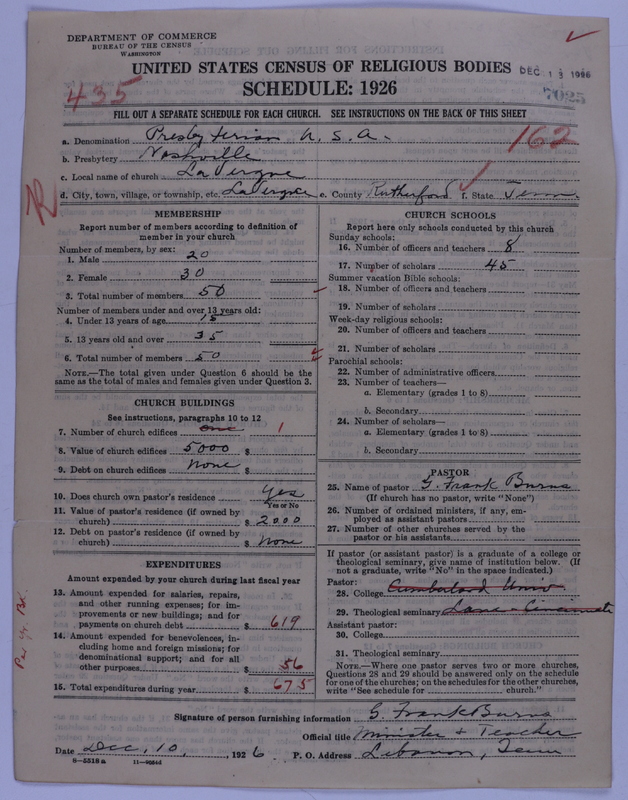 DEPARTMENT OF COMMERCE
BUREAU OF THE CENSUS
WASHINGTON
UNITED STATES CENSUS OF RELIGIOUS BODIES
DEC 13 1926
SCHEDULE: 1926
7025
435
FILL OUT A SEPARATE SCHEDULE FOR EACH CHURCH. SEE INSTRUCTIONS ON THE BACK OF THIS SHEET
162
a. Denomination Presbyterian U. S. A.
b. Presbytery Nashville
c. Local name of church LaVergne
d. City, town, village, or township, etc. LaVergne e. County Rutherford f. State Tenn.
R
MEMBERSHIP
Report number of members according to definition of
member in your church
Number of members, by sex:
1. Male 20
2. Female 30
3. Total number of members 50
Number of members under and over 13 years old:
4. Under 13 years of age 15
5. 13 years old and over 35
6. Total number of members 50
NOTE.—The total given under Question 6 should be
same as the total of males and females given under Question 3.
CHURCH BUILDINGS
See instructions, paragraphs 10 to 12
7. Number of church edifices one 1
8. Value of church edifices 5000 $
9. Debt on church edifices None $
10. Does church own pastor's residence Yes
Yes or No
11. Value of pastor's residence (if owned by
church) $ 2000
12. Debt on pastor's residence (if owned by
church) $ None
EXPENDITURES
Amount expended by your church during last fiscal year
13. Amount expended for salaries, repairs,
and other running expenses; for im-
provements or new buildings; and for
payments on church debt $ 619
14. Amount expended for benevolences, in-
cluding home and foreign missions; for
denominational support; and for all
other purposes $ 56
15. Total expenditures during year $ 675
Per Yr. Bk.
CHURCH SCHOOLS
Report here only schools conducted by this church
Sunday schools:
16. Number of officers and teachers 8
17. Number of scholars 45
Summer vacation Bible schools:
18. Number of officers and teachers
19. Number of scholars
Week-day religious schools:
20. Number of officers and teachers
21. Number of scholars
Parochial schools:
22. Number of administrative officers
23. Number of teachers—
a. Elementary (grades 1 to 8)
b. Secondary
24. Number of scholars—
a. Elementary (grades 1 to 8)
b. Secondary
PASTOR
25. Name of pastor G. Frank Burns
(If church has no pastor, write "None")
26. Number of ordained ministers, if any, em-
ployed as assistant pastors
27. Number of other churches served by the
pastor or his assistants
If pastor (or assistant pastor) is a graduate of a college or
theological seminary, give name of institution below. (If
not a graduate, write "No" in the space indicated.)
Pastor:
28. College Cumberland Univ
29. Theological seminary Lane Cincinnati
Assistant pastor:
30. College
31. Theological seminary
NOTE.—Where one pastor serves two or more churches,
Questions 28 and 29 should be answered only on the schedule
for one of the churches; on the schedules for the other churches,
write "See schedule for church."
Signature of person furnishing information G. Frank Burns
Official title Minister + Teacher
Date Dec, 10, 1926 P. O. Address Lebanon, Tenn
8-5518a